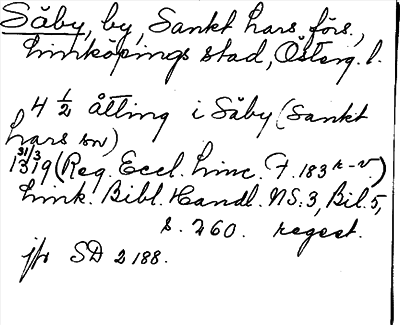 Säby, by, Sankt Lars förs.,
Linköpings stad, Österg. l.
4 1/2 ätting i Säby (Sankt
Lars sn)
31/3
1319 (Reg. Eccl. Linc. F. 183 r-v.)
Link. Bibl. Handl. NS:3, Bil. 5,
s. 260. regest.
jfr SD 2188.